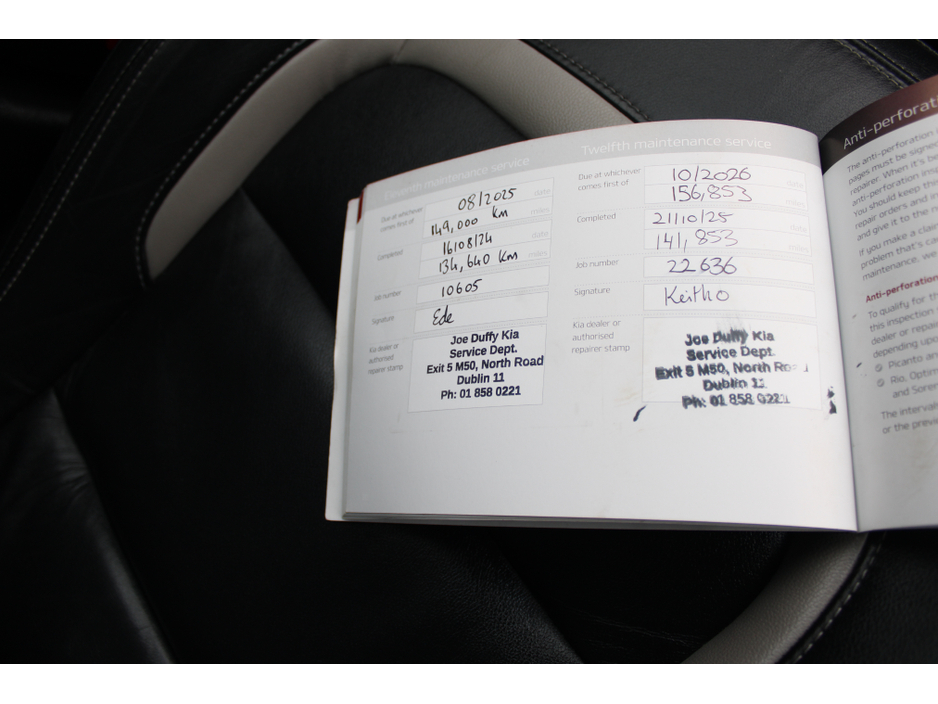 Eleventh maintenance service
Due at whichever comes first of
08/2025 date
149,000 km miles
Completed
16/08/24 date
134,640 km miles
Job number
10605
Signature
Ede
Kia dealer or authorised repairer stamp
Joe Duffy Kia
Service Dept.
Exit 5 M50, North Road
Dublin 11
Ph: 01 858 0221
Twelfth maintenance service
Due at whichever comes first of
10/2026 date
156,853 miles
Completed
21/10/25 date
141,853 miles
Job number
22636
Signature
Keith O
Kia dealer or authorised repairer stamp
Joe Duffy Kia
Service Dept.
Exit 5 M50, North
Dublin
Ph: 01 858 0221
Anti-perforat
The anti-perforation
pages must be signed
repairer. When it's be
anti-perforation insp
You should keep this
repair orders and in
and give it to the n
If you make a clai
problem that's ca
maintenance, we
Anti-perforation
To qualify for th
this inspection
dealer or repair
depending upo
Picanto an
Rio, Optim
and Soren
The interval
or the previ